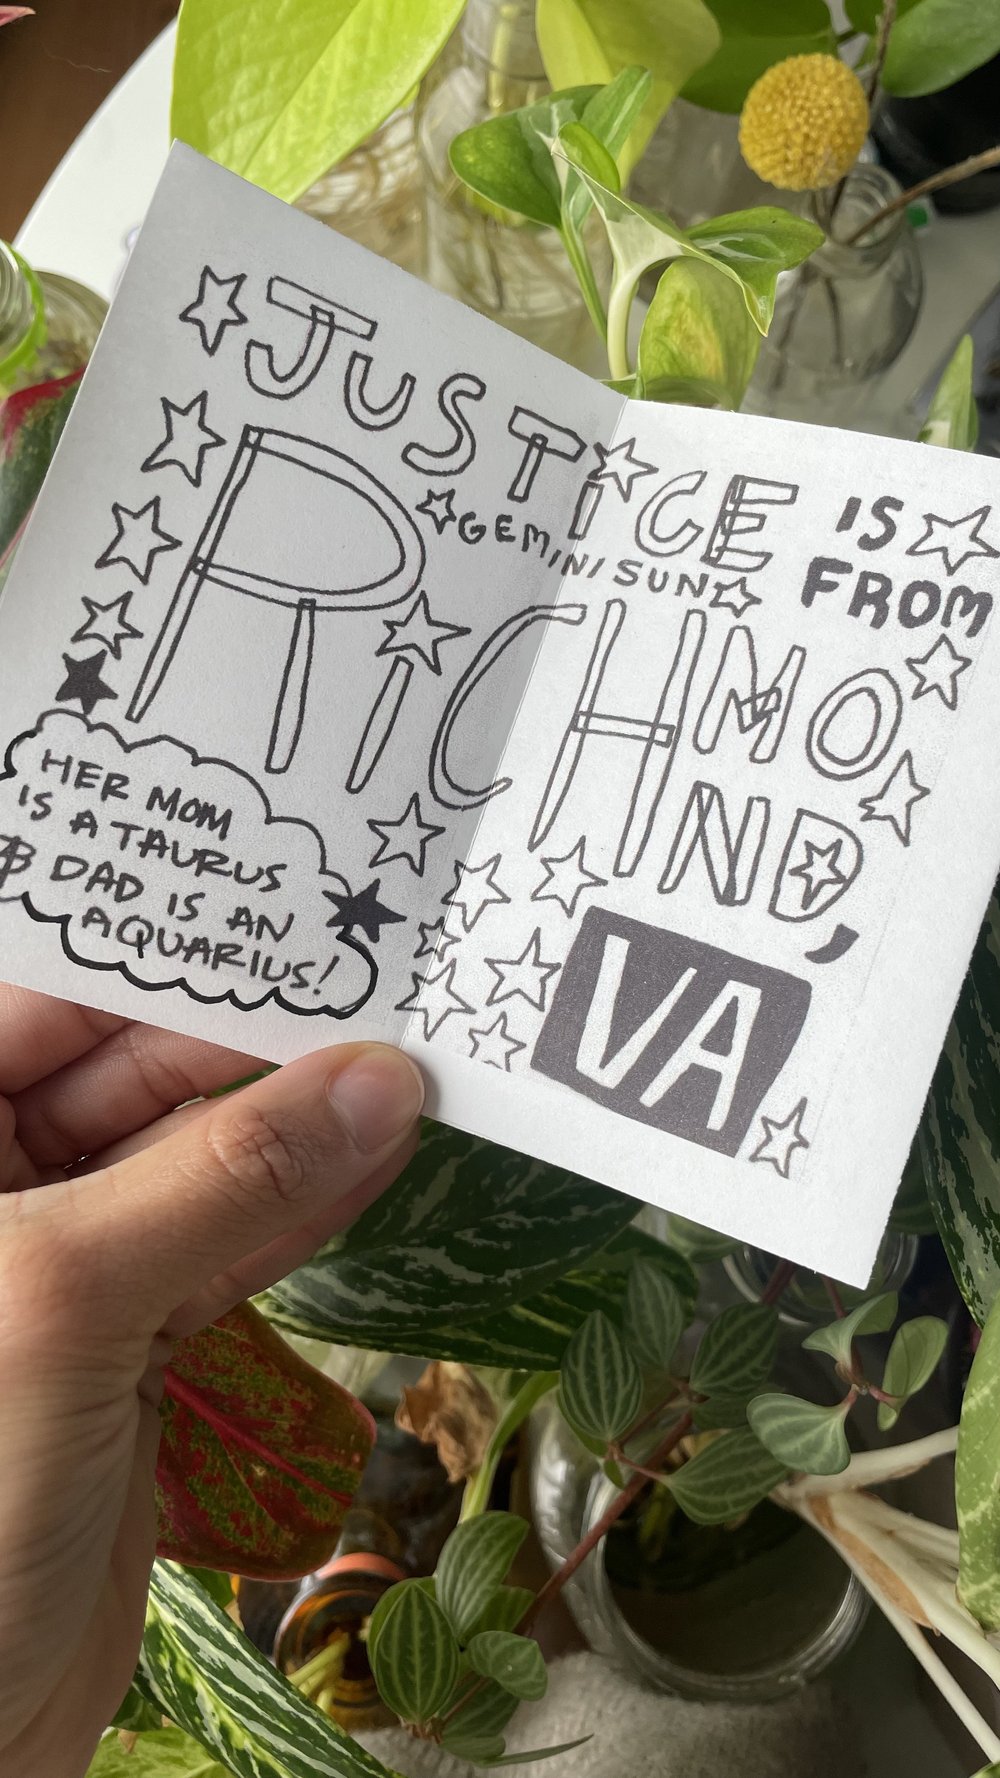 JUSTICE IS
GEMINI SUN
FROM
RICHMO
ND,
VA
HER MOM
IS A TAURUS
& DAD IS AN
AQUARIUS!